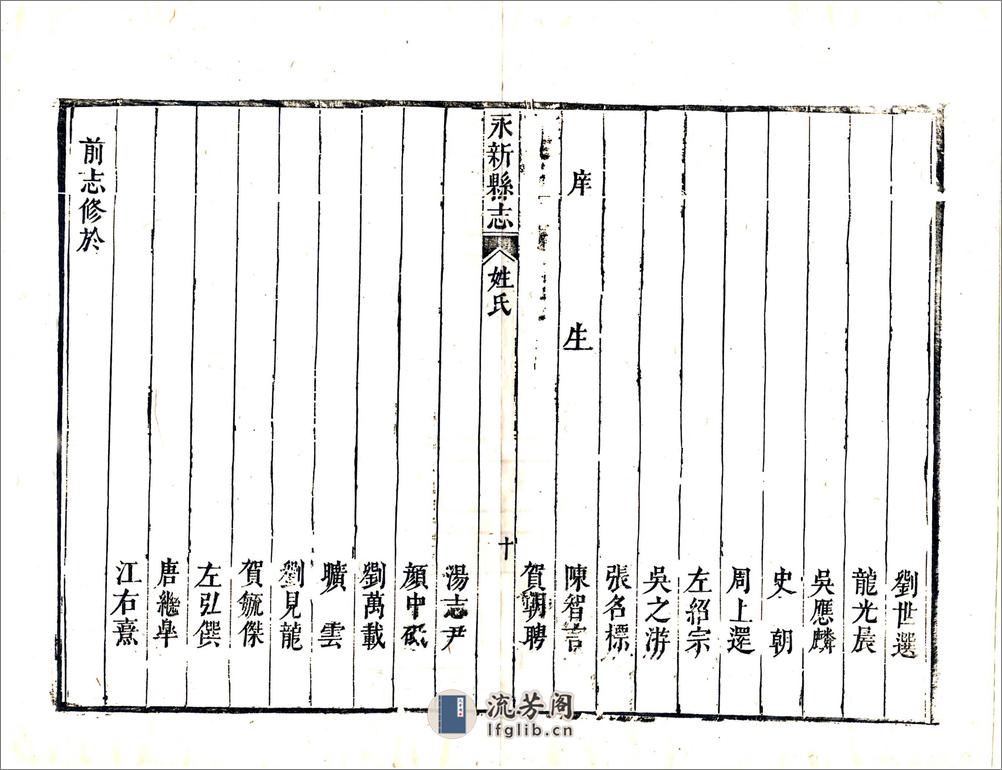 劉世選
龍光晨
吳應麟
史朝
周上選
左紹宗
吳之游
張名標
庠生 陳智言
賀朝聘
永新縣志 姓氏 十
湯志尹
顏中砥
劉萬載
曠雲
劉見龍
賀毓傑
左弘僎
唐繼皐
江右熹
前志修於
流芳阁
lfglib.cn